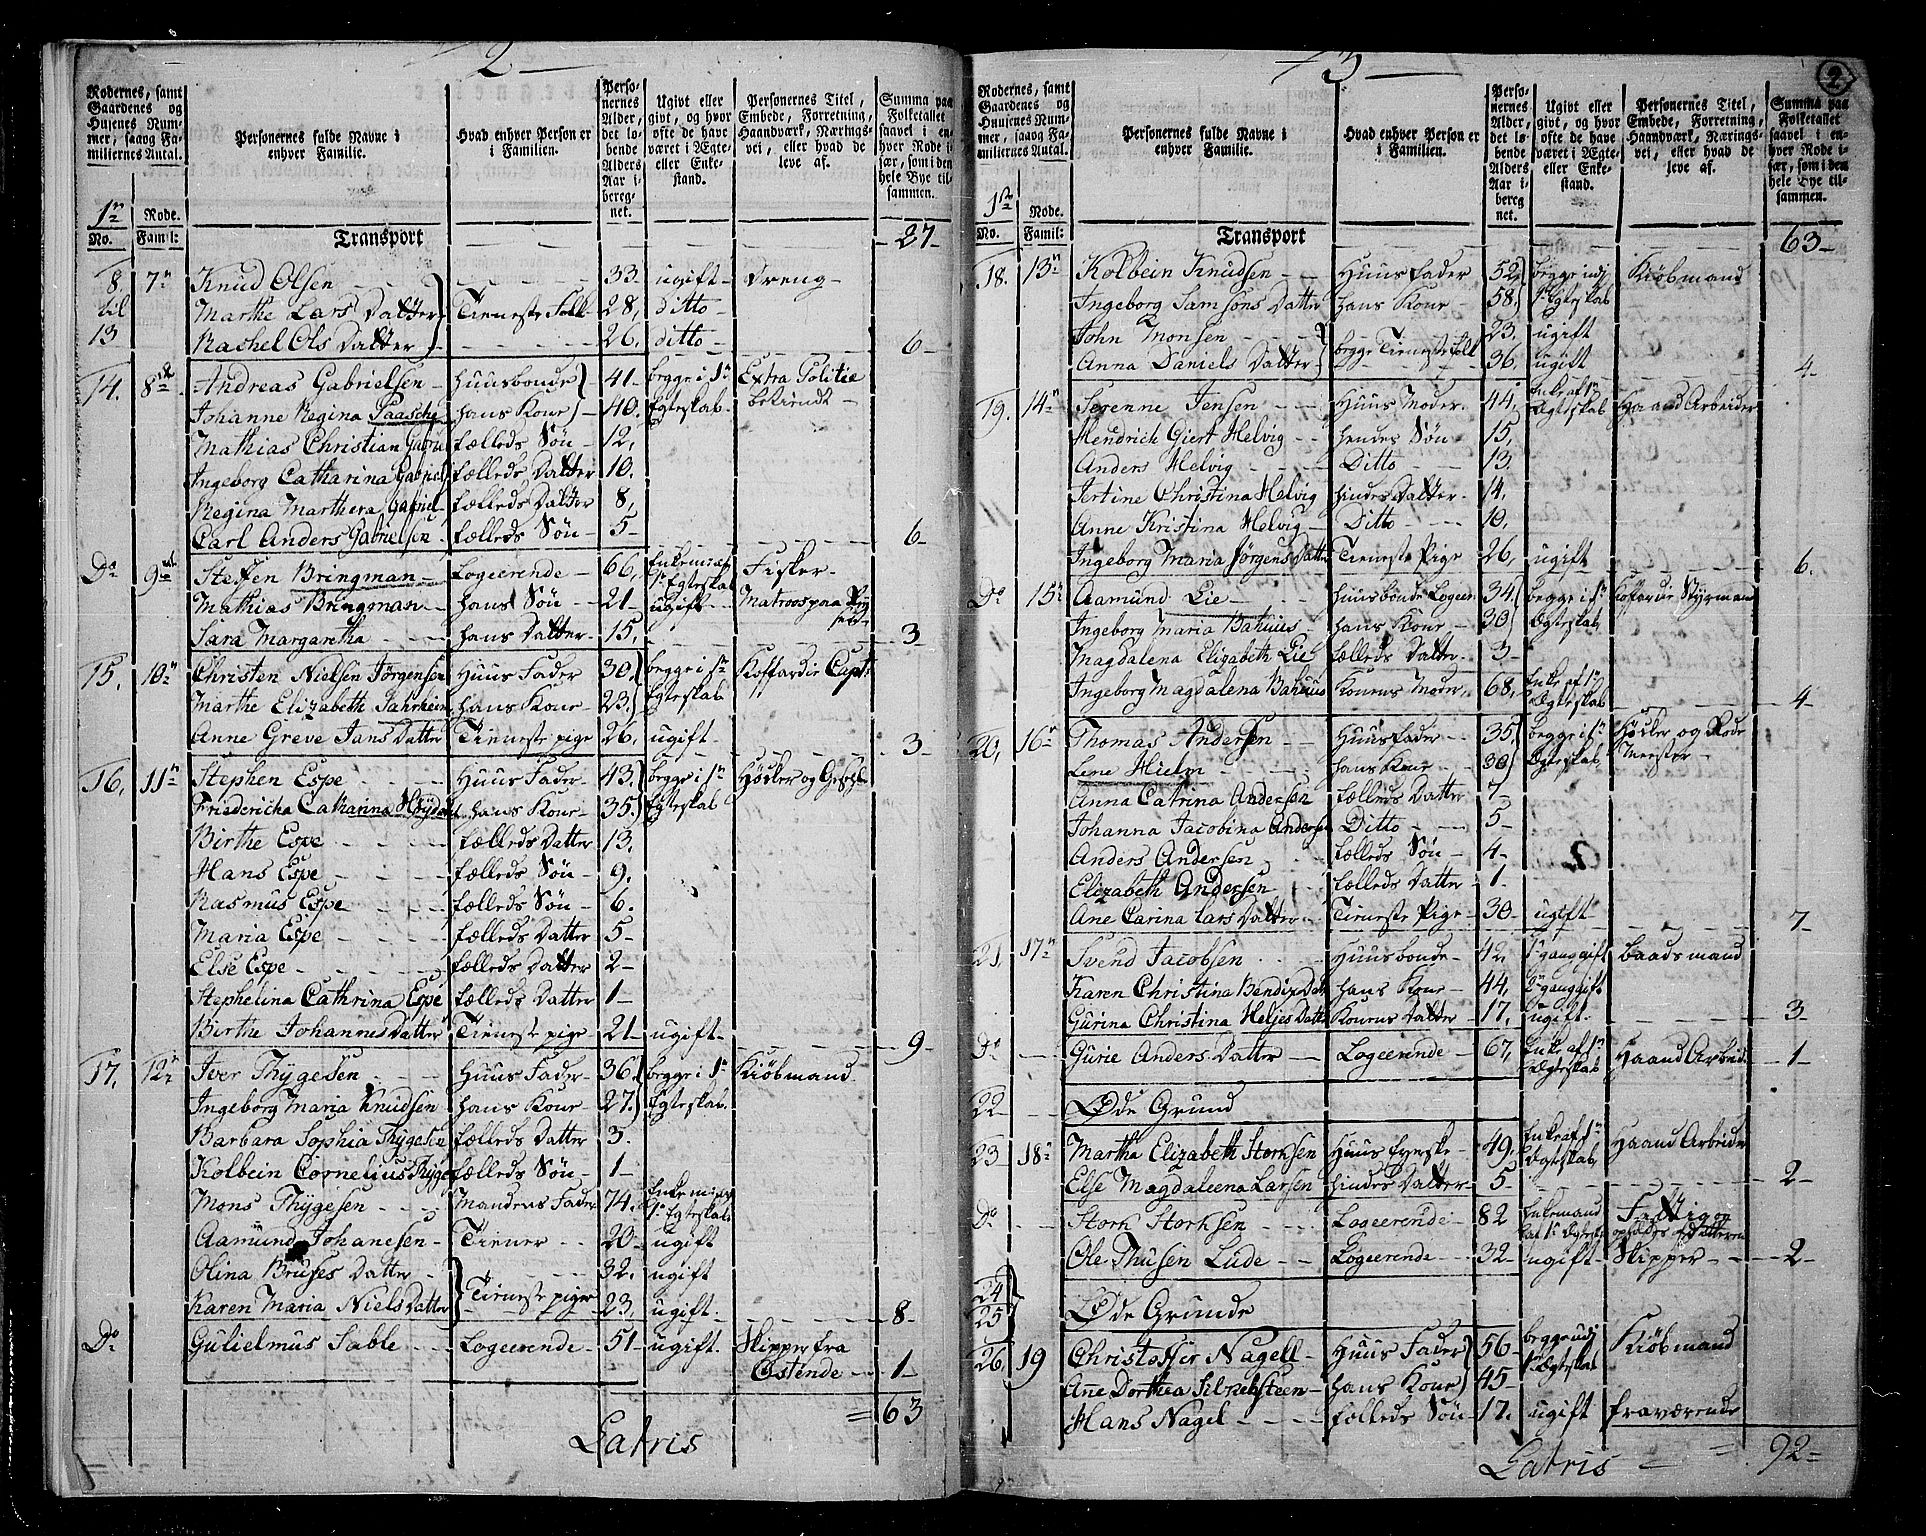 2
Rodernes, samt Gaardenes og Husenes Nummer, saavog Familiernes Antal.
Personernes fulde Navne i enhver Familie.
Hvad enhver Person er i Familien.
Personernes Alder, det løbende Alders Aar iberegnet.
Ugivt eller givt, og hvor ofte de have været i Ægte- eller Enkestand.
Personernes Titel, Embede, Forretning, Haandværk, Næringsvei, eller hvad de leve af.
Summa paa Folketallet saavel i enhver Rode især, som i den hele Bye tilsammen.
1n Rode.
No. Famil:
Transport 27
8 7n Knud Olsen 33 ugift Dreng
til Marthe Lars Datter Tieneste Folk 28 ditto
13 Rachel Ols Datter 26 ditto 6
14. 8 Andreas Gabrielsen Huusbonde 41 begge i 1n Extra Politie
Johanne Regina Paasche hans Kone 40 Egteskab betiendt
Mathias Christian Gabriel fælleds Søn 12
Ingeborg Catharina Gabriel fælleds Datter 10
Regina Marthera Gabriel fælleds Datter 8
Carl Anders Gabrielsen fælleds Søn 5 6
Do 9 Steffen Bringman Logeerende 66 Enkem: af 1n Egteskab Fisker
Mathias Bringman hans Søn 21 ugift Matroos paa
Sara Margaretha hans Datter 15 3
15. 10n Christen Nielsen Jørgensen Huus Fader 30 begge i 1n Koffardie Capt:
Marthe Elizabeth hans Kone 23 Egteskab
Anne Greve Jans Datter Tieneste pige 26 ugift 3
16. 11n Stephen Espe Huus Fader 43 begge i 1n Høcker og
Friedericha Catharina hans Kone 35 Egteskab
Birthe Espe fælleds Datter 13
Hans Espe fælleds Søn 9
Rasmus Espe fælleds Søn 6
Maria Espe fælleds Datter 5
Else Espe fælleds Datter 2
Stephelina Cathrina Espe fælleds Datter 1
Birthe Johannes Datter Tieneste pige 21 ugift 9
17. 12n Iver Thygesen Huus Fader 36 begge i 1n Kiøbmand
Ingeborg Maria Knudsen hans Kone 27 Egteskab
Barbara Sophia Thygesen fælleds Datter 3
Kolbein Cornelius Thyge fælleds Søn 1
Mons Thygesen Mandens Fader 74 Enkem: af 1n Egteskab
Aamund Johanesen Tiener 20 ugift
Olina Bruses Datter 32 ugift
Karen Maria Niels Datter Tieneste piger 23 ugift 8
Do Gulielmus Sable Logeerende 51 ugift Skipper fra
Ostende 1
Latris = 63
3
2
Rodernes, samt Gaardenes og Huusenes Nummer, saavog Familiernes Antal.
Personernes fulde Navne i enhver Familie.
Hvad enhver Person er i Familien.
Personernes Alder, det løbende Alders Aar iberegnet.
Ugivt eller givt, og hvor ofte de have været i Ægte- eller Enkestand.
Personernes Titel, Embede, Forretning, Haandværk, Næringsvei, eller hvad de leve af.
Summa paa Folketallet saavel i enhver Rode især, som i den hele Bye tilsammen.
1n Rode.
No. Famil:
Transport 63
18. 13n Kolbein Knudsen Huus Fader 52 begge udi Kiøbmand
Ingeborg Samsons Datter hans Kone 58 1n Egteskab
John Monsen 23 ugift
Anna Daniels Datter begge Tieneste folk 36 ugift 4
19. 14n Serenne Jensen Huus Moder 44 Enke af 1n Ægteskab Haand Arbeider
Hendrich Giert Helvig hendes Søn 15
Anders Helvig Ditto 13
Jertine Christina Helvig hindes Datter 14
Anne Kristina Helvig Ditto 10
Ingeborg Maria Jørgens Datter Tieneste Pige 26 ugift 6
Do 15n Aamund Lie huusbonde Logeer 34 begge i 1n Koffardie Styrmand
Ingeborg Maria Bahuus hans Kone 30 Ægteskab
Magdalena Elizabeth Lie fælleds Datter 3
Ingeborg Magdalena Bahuus Konens Moder 68 Enke af 1n Ægteskab 4
20. 16n Thomas Andersen Huusfader 35 begge i 1n Høcker og Rode
Lene Hielm hans Kone 30 Ægteskab Meester
Anna Catrina Andersen fælleds Datter 7
Johanna Jacobina Andersen Ditto 5
Anders Andersen fælleds Søn 4
Elizabeth Andersen fælleds Datter 1
Ane Carina Lars Datter Tieneste Pige 30 ugift 7
21. 17n Svend Jacobsen Huusbonde 42 1n gang gift Baadsmand
Karen Christina Bendix Dat hans Kone 44 2n gang gift
Gurina Christina Heljes Datter Konens Datter 17 ugift 3
Do Gurie Anders Datter Logeerende 67 Enke af 1n Ægteskab Haand Arbeid 1
22 Øde Grund
23 18n Martha Elizabeth Storksen Huus 49 Enke af 1n Ægteskab Haand Arbeider
Else Magdaleena Larsen hindes Datter 5 2
Do Stork Storksen Logeerende 82 Enkemand af 1n Ægtesk Fattig og opholdes af Datteren
Ole Thusen Lude Logeerende 32 ugift Skipper 2
24
25 Øde Grunde
26 19 Christoffer Nagell Huus Fader 56 begge udi Kiøbmand
Ane Dorthea hans Kone 45 1n Ægteskab
Hans Nagel fælleds Søn 17 ugift fraværende
Latris = 92